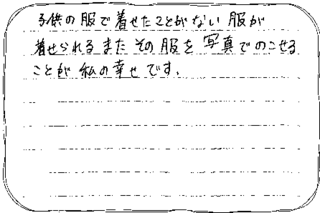 子供の服で着せたことがない服が
着せられるまたその服を写真でのこせる
ことが私の幸せです.